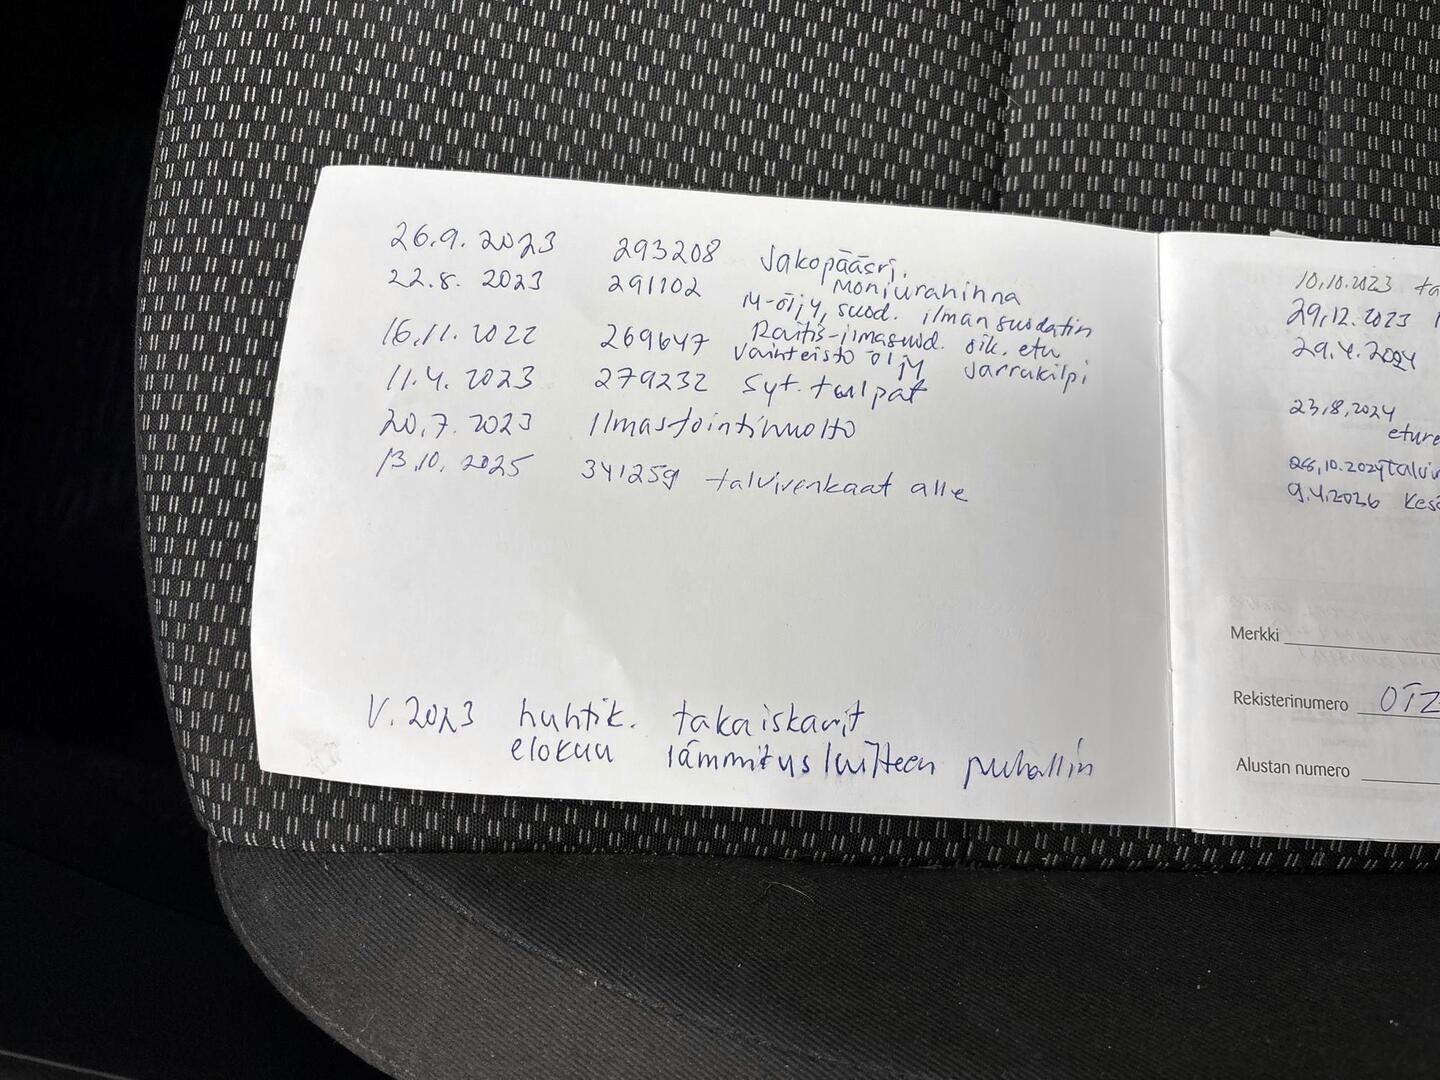 26.9. 2023 293208 Jakopääsrj.
moniurahihna
22.8. 2023 291102 M-öljy, suod. ilmansuodatin
16.11. 2022 269647 Raitis-ilmasuod. oik. etu
Vaihteisto öljy jarrukilpi
11.4. 2023 279232 Syt. tulpat
20.7. 2023 Ilmastointihuolto
13.10. 2025 341259 talvirenkaat alle
V. 2023 huhtik. takaiskarit
elokuu lämmityslaitteen puhallin
10.10.2023 ta
29.12.2023
29.4.2024
23.8.2024
eture
28.10.2024 talvi
9.4.2026 Kesä
Merkki
Rekisterinumero OTZ
Alustan numero